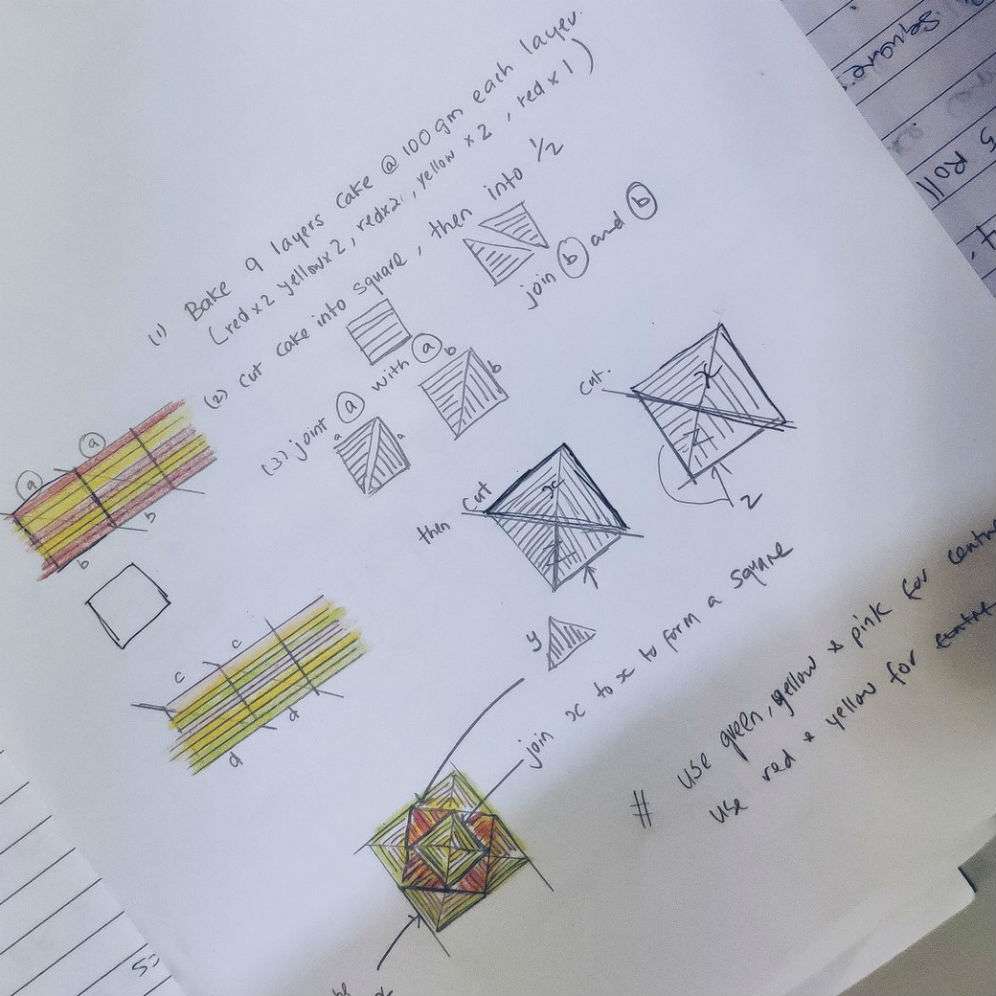 (1) Bake 9 layers cake @ 100gm each layer.
(red x 2 yellow x 2, red x 2, yellow x 2, red x 1)
(2) cut cake into square, then into 1/2
join (b) and (b)
(3) joint (a) with (a)
a
a
b
b
(a)
(a)
b
b
cut.
x
z
then cut
x
y
c
c
d
d
join x to x to form a square
# use green, yellow & pink for centre
use red & yellow for centre
square
Roll